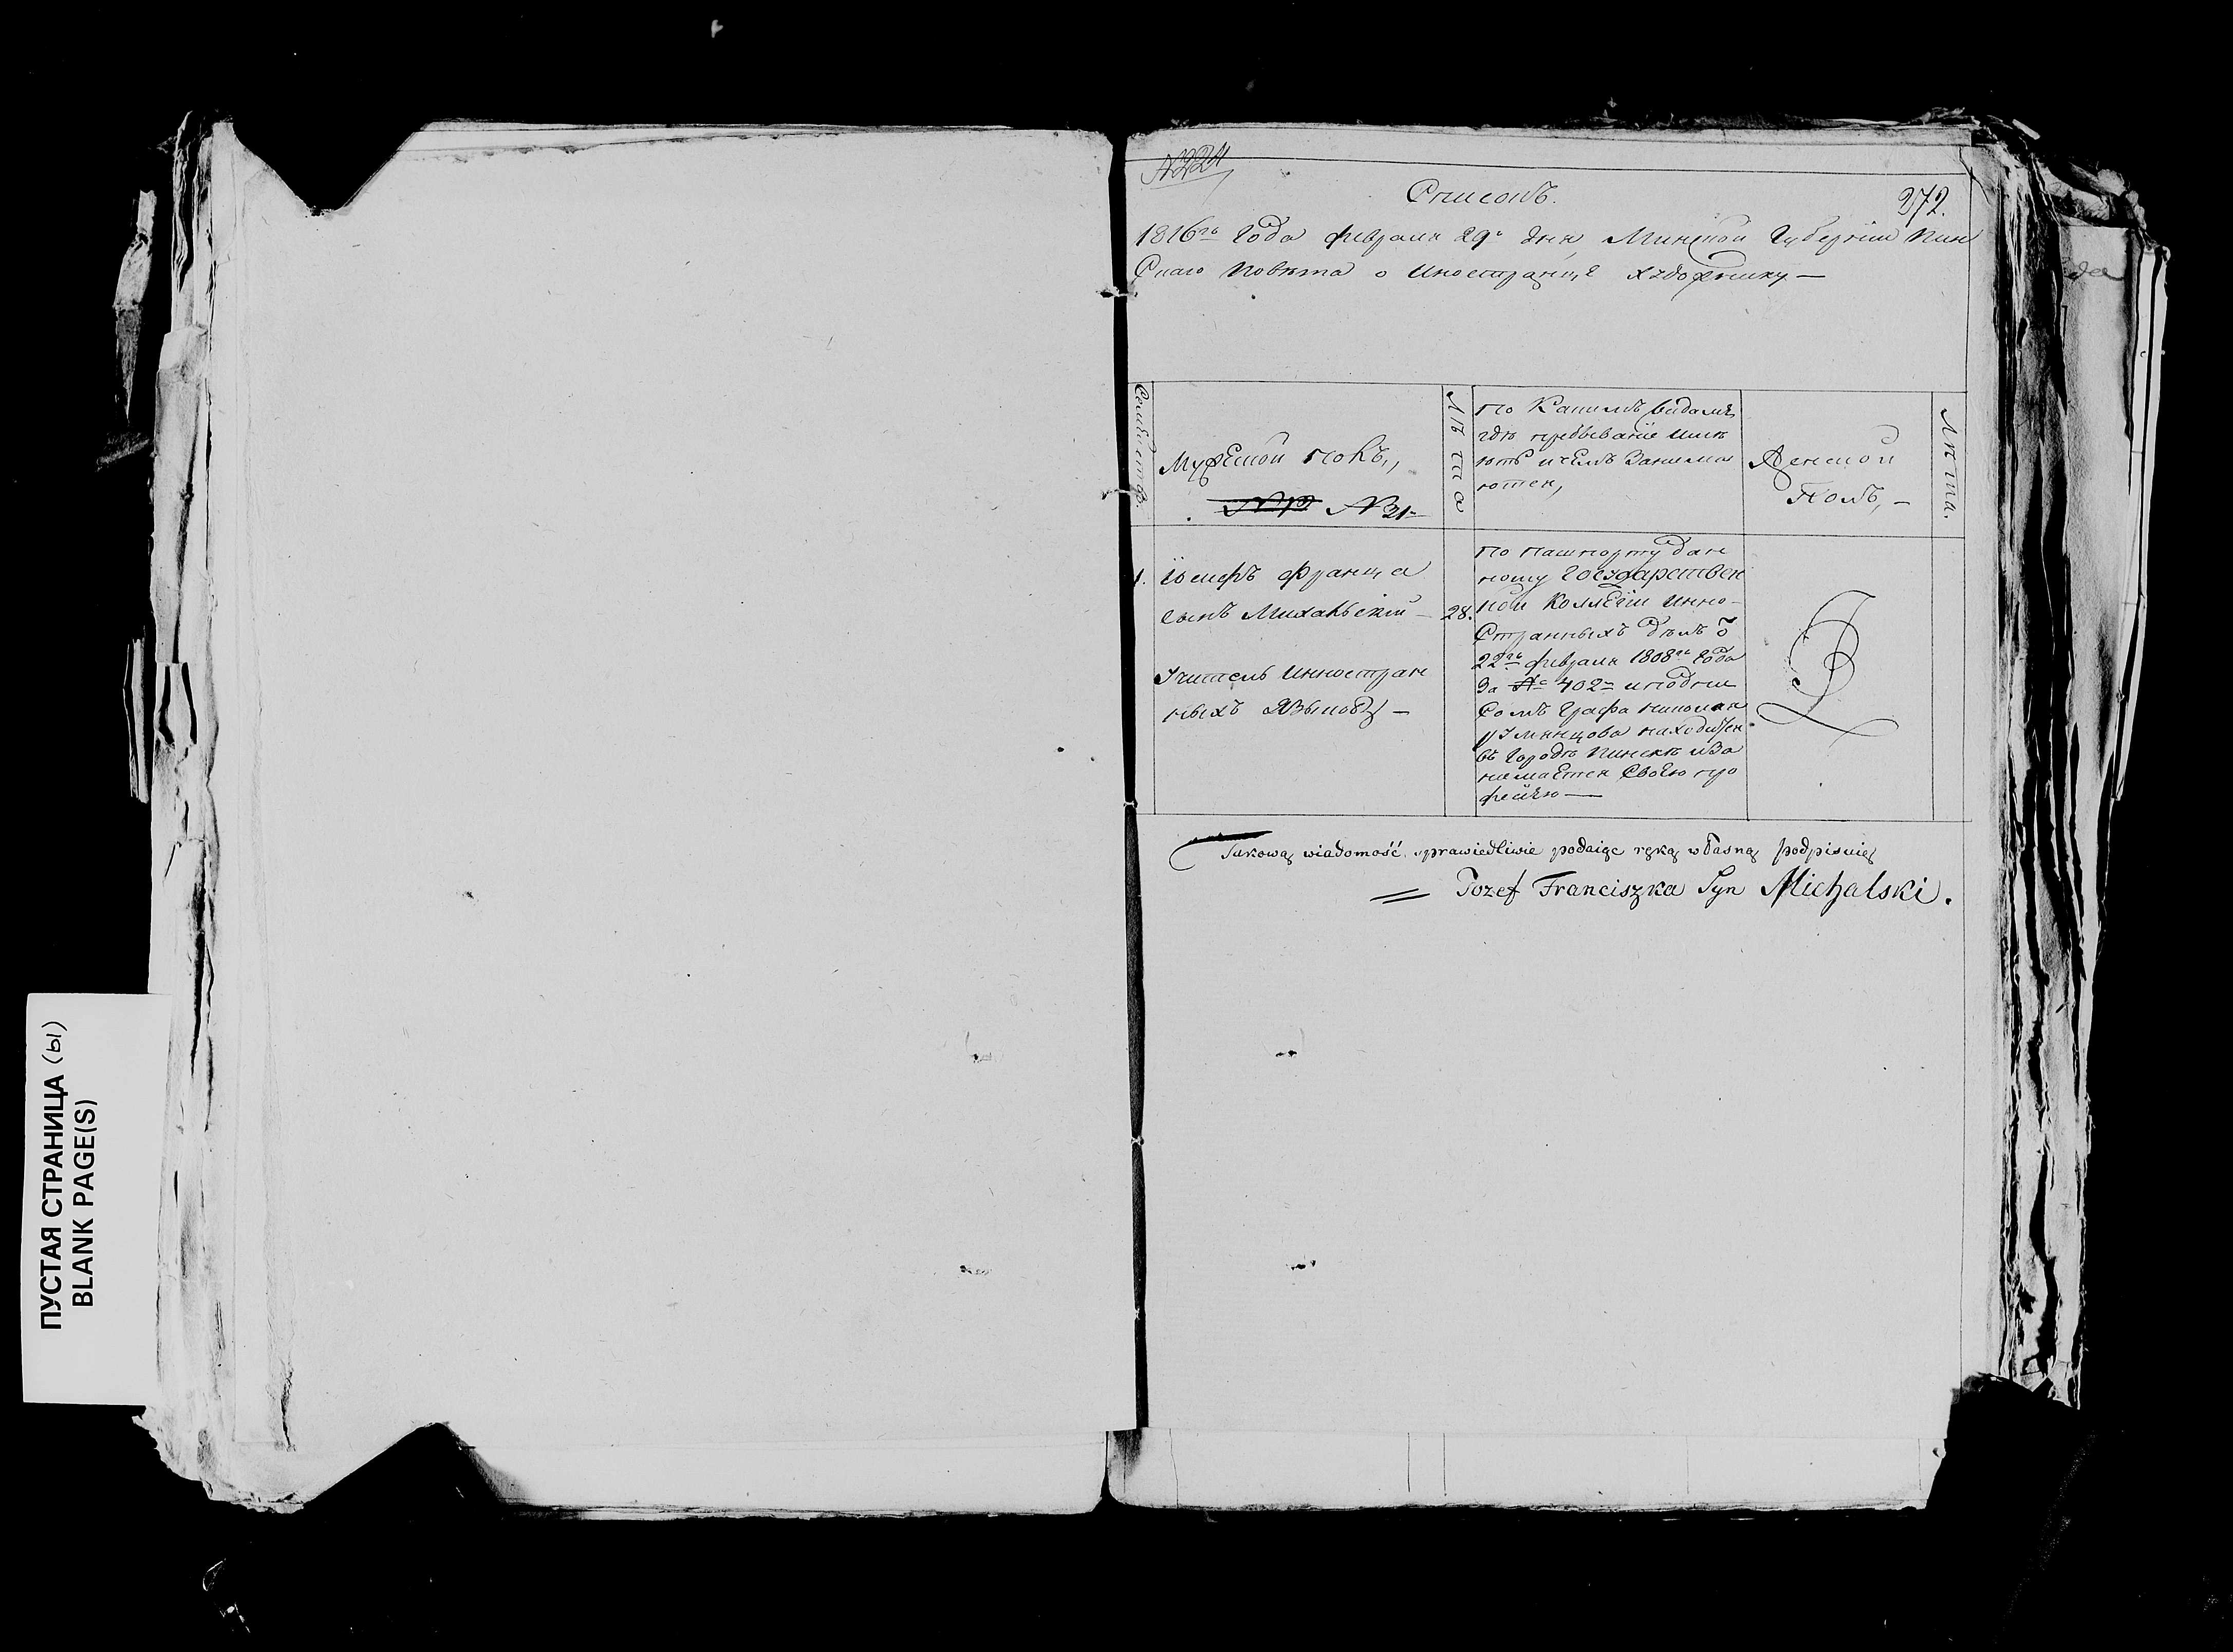 ПУСТАЯ СТРАНИЦА (ы)
BLANK PAGE(S)
№224
Списокъ.
372.
1816го Года февраля 29го дня Минской Губернїи Пин
скаго Повѣта о Иностранце художнику —
Мужеской полъ,,
№ 21
Лѣта
По Какимъ видамъ
гдѣ пребыванїе имѣ
ютъ и чемъ Занима
ются,
Женской
Полъ, —
Лѣта.
1.
Їосифъ Франца
сынъ Михальскїй —
Учитель Инностран
ныхъ Языковъ —
28.
По пашпорту дан
ному Государствен
ной Коллегїи Инно-
Странныхъ дѣлъ о
22го февраля 1808го Года
За № 402м и подпи
Сомъ Графа Николая
Румянцова находится
въ Городѣ Пинскѣ и За
нимается Своею про
фесїею —
Takową wiadomość sprawiedliwie podaiąc ręką własną podpisuię
= Jozef Franciszka Syn Michalski.